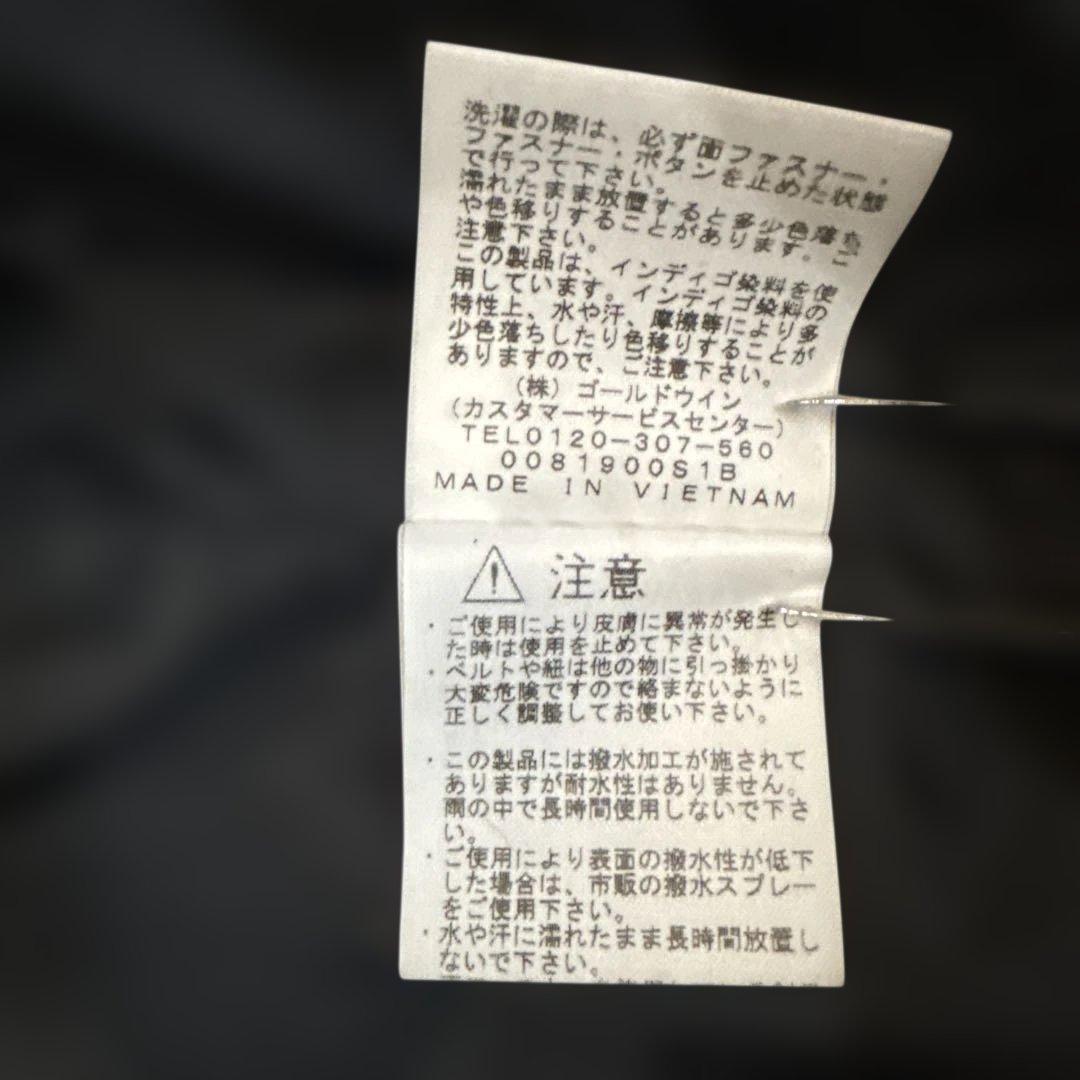 洗濯の際は、必ず面ファスナー・
ファスナー・ボタンを止めた状態
で行って下さい。
濡れたまま放置すると多少色落ち
や色移りすることがあります。ご
注意下さい。
この製品は、インディゴ染料を使
用しています。インディゴ染料の
特性上、水や汗、摩擦等により多
少色落ちしたり色移りすることが
ありますので、ご注意下さい。
(株)ゴールドウイン
(カスタマーサービスセンター)
TEL0120-307-560
0081900S1B
MADE IN VIETNAM
注意
・ご使用により皮膚に異常が発生し
た時は使用を止めて下さい。
・ベルトや紐は他の物に引っ掛かり
大変危険ですので絡まないように
正しく調整してお使い下さい。
・この製品には撥水加工が施されて
ありますが耐水性はありません。
雨の中で長時間使用しないで下さ
い。
・ご使用により表面の撥水性が低下
した場合は、市販の撥水スプレー
をご使用下さい。
・水や汗に濡れたまま長時間放置し
ないで下さい。